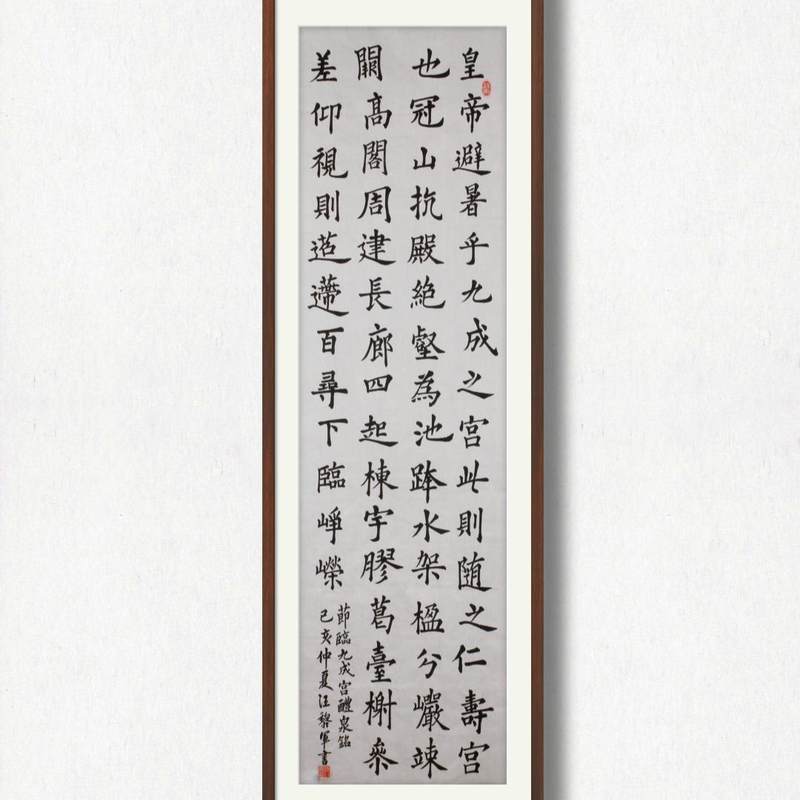 皇帝避暑乎九成之宮此則随之仁壽宮
也冠山抗殿絶壑為池跨水架楹分巖竦
闕高閣周建長廊四起棟宇膠葛臺榭叅
差仰視則迢遰百尋下臨崢嶸
節臨九成宮醴泉銘
己亥仲夏汪黎軍書